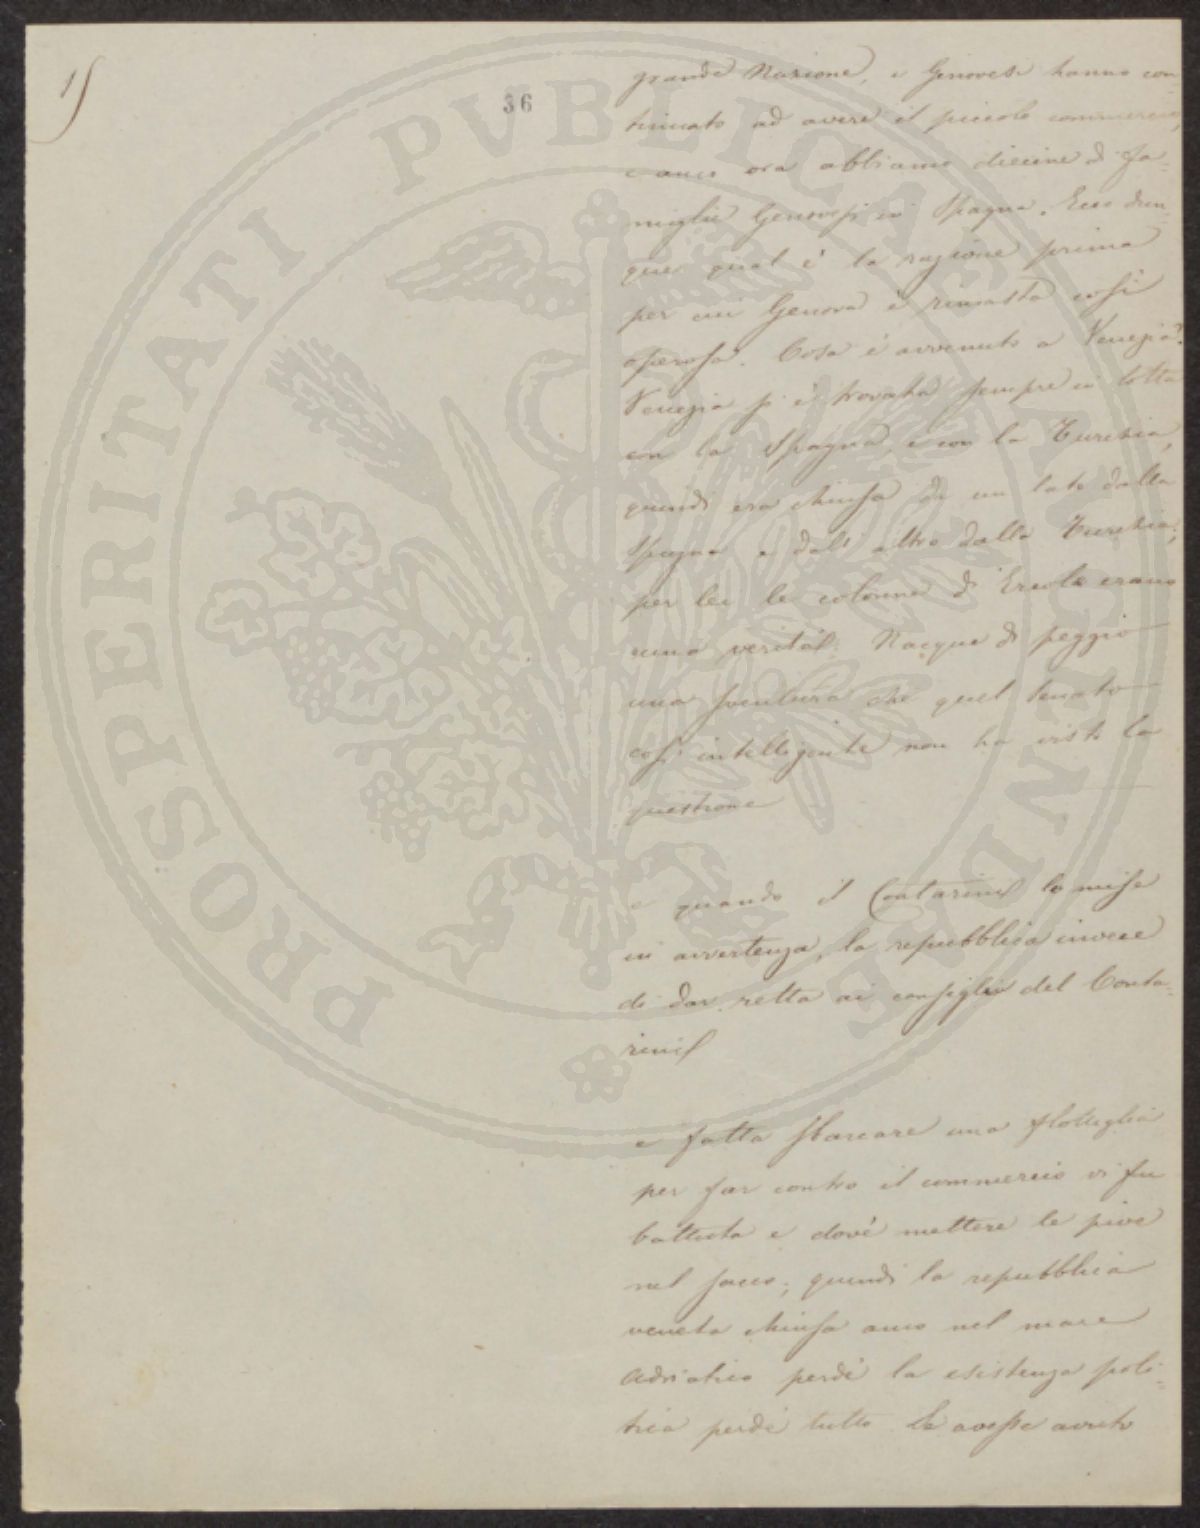 15
36
grande Nazione, i Genovesi hanno con
tinuato ad avere il piccolo commercio,
e anco ora abbiamo diecine di fa-
miglie Genovesi in Spagna. Ecco dun-
que qual è la ragione prima
per cui Genova è rimasta così
operosa. Cosa è avvenuto a Venezia?
Venezia si è trovata sempre in lotta
con la Spagna, e con la Turchia,
quindi era chiusa da un lato dalla
Spagna e dall altro dalla Turchia;
per lei le colonne di Ercole erano
una verità. Nacque di peggio
una sventura che quel senato
così intelligente non ha visto la
questione
e quando il Contarini lo mise
in avvertenza, la repubblica invece
di dar retta ai consigli del Conta-
rini
e fatta sbarcare una flottiglia
per far contro il commercio vi fu
battuta e dové mettere le pive
nel sacco; quindi la repubblica
veneta chiusa anco nel mare
Adriatico perdé la esistenza poli-
tica perdé tutto Se avesse avuto
PROSPERITATI PVBLICAE AVGENDAE